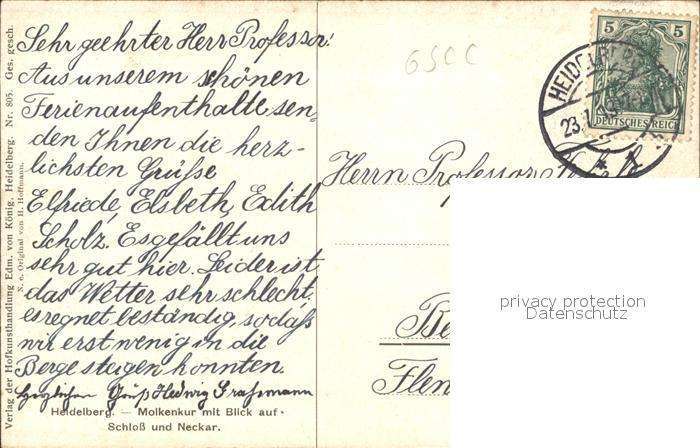 Sehr geehrter Herr Professor!
Aus unserem schönen
Ferienaufenthalte sen-
den Ihnen die herz-
lichsten Grüße
Elfriede, Elsbeth, Edith
Scholz. Es gefällt uns
sehr gut hier. Leider ist
das Wetter sehr schlecht,
es regnet beständig, sodaß
wir erst wenig in die
Berge steigen konnten.
Herzlichen Gruß Hedwig
Heidelberg. — Molkenkur mit Blick auf
Schloß und Neckar.
Verlag der Hofkunsthandlung Edm. von König, Heidelberg. Nr. 805. Ges. gesch.
N. e. Original von H. Hoffmann.
6500
5 5
DEUTSCHES REICH
HEIDELB
23.
Herrn Professor
Be
Flen
privacy protection
Datenschutz